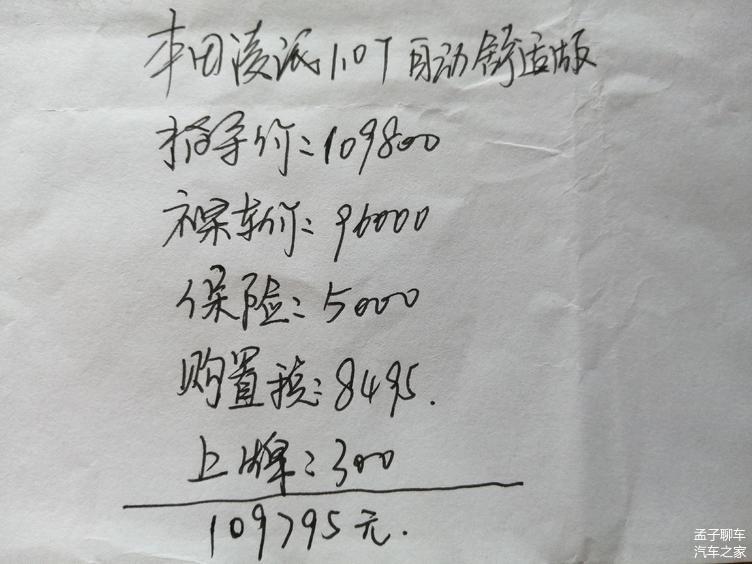 本田凌派1.0T自动舒适版
指导价:109800
裸车价:96000
保险:5000
购置税:8495.
上牌:300
109795元.
孟子聊车
汽车之家